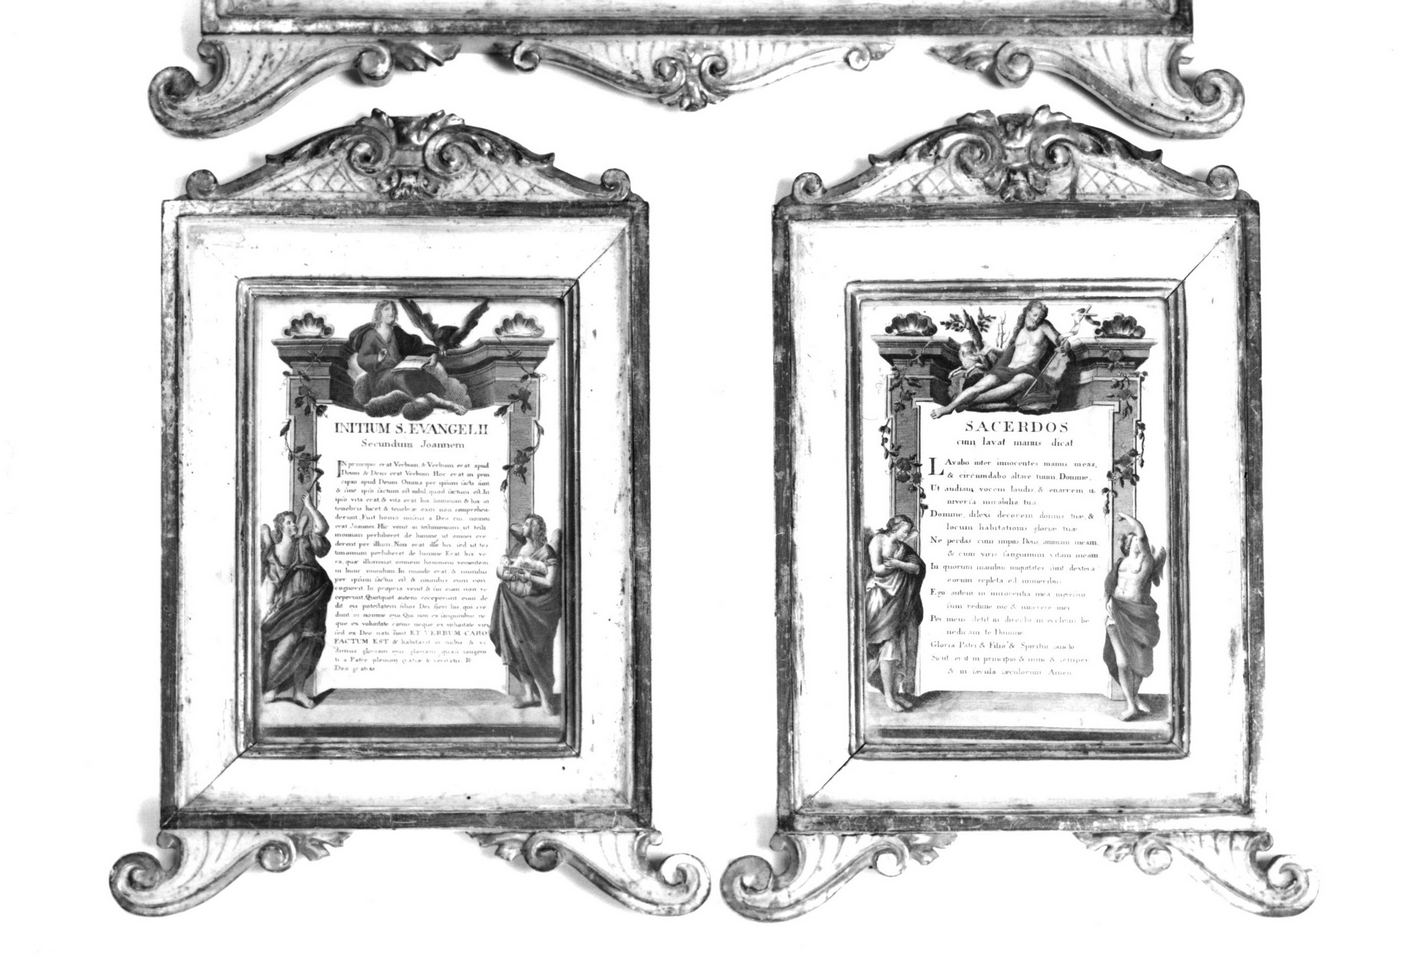 INITIUM S. EVANGELII
Secundum Joannem
IN principio erat Verbum & Verbum erat apud
Deum & Deus erat Verbum Hoc erat in prin
cipio apud Deum Omnia per ipsum facta sunt
& sine ipso factum est nihil quod factum est In
ipso vita erat & vita erat lux hominum & lux in
tenebris lucet & tenebrae eam non comprehen
derunt. Fuit homo missus a Deo cui nomen
erat Joannes Hic venit in testimonium ut testi
monium perhiberet de lumine ut omnes cre
derent per illum Non erat ille lux sed ut tes
timonium perhiberet de lumine Erat lux ve
ra, quæ illuminat omnem hominem venientem
in hunc mundum In mundo erat & mundus
per ipsum factus est & mundus eum non
cognovit In propria venit & sui eum non re
ceperunt Quotquot autem receperunt eum de
dit eis potestatem filios Dei fieri his qui cre
dunt in nomine ejus Qui non ex sanguinibus ne
que ex voluntate carnis neque ex voluntate viri
sed ex Deo nati sunt ET VERBUM CARO
FACTUM EST & habitavit in nobis & vi
dimus gloriam ejus gloriam quasi unigeni
ti a Patre plenum gratiæ & veritatis R
Deo gratias
SACERDOS
cum lavat manus dicat
LAvabo inter innocentes manus meas,
& circumdabo altare tuum Domine.
Ut audiam vocem laudis & enarrem u
niversa mirabilia tua
Domine, dilexi decorem domus tuæ &
locum habitationis gloriæ tuæ
Ne perdas cum impiis Deus animam meam,
& cum viris sanguinum vitam meam
In quorum manibus iniquitates sunt dextera
eorum repleta est muneribus
Ego autem in innocentia mea ingressus
sum redime me & miserere mei
Pes meus stetit in directo in ecclesiis be
nedicam te Domine
Gloria Patri & Filio & Spiritui sancto
Sicut erat in principio & nunc & semper
& in sæcula sæculorum Amen